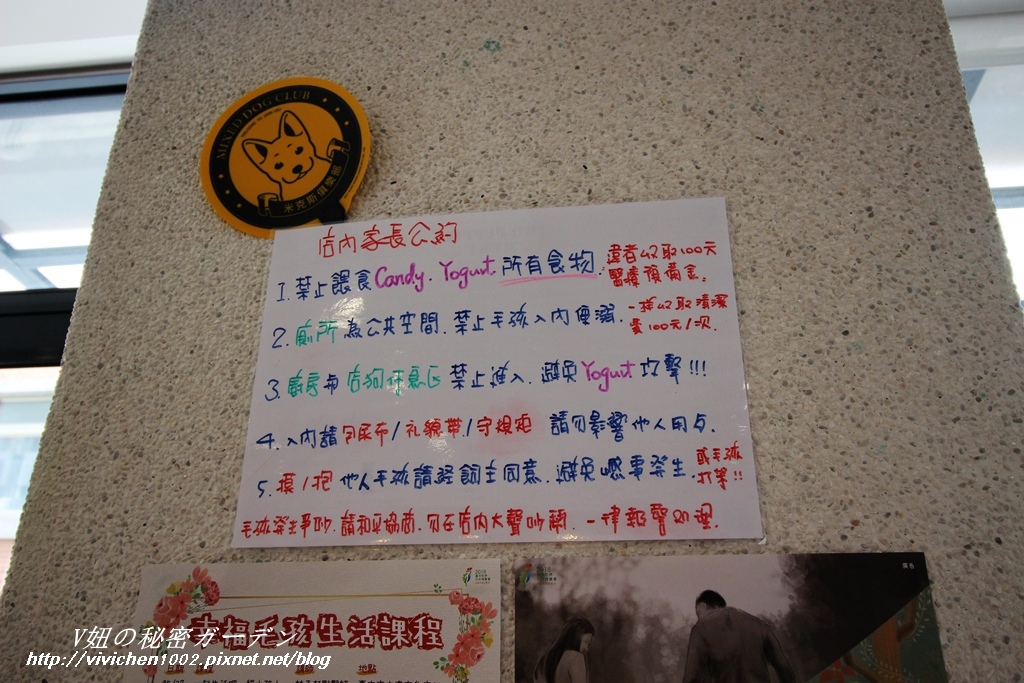 MIXED DOG CLUB
米克斯俱樂部
店內家長公約
1. 禁止餵食Candy. Yogurt 所有食物. 違者收取100元
醫療預備金.
2. 廁所為公共空間. 禁止毛孩入內便溺. 一律收取清潔
費100元/次.
3. 廚房與店狗休息區禁止進入. 避免Yogurt攻擊!!!
4. 入內請包尿布/礼貌帶/守規矩 請勿影響他人用餐.
5. 摸/抱他人毛孩請經飼主同意. 避免憾事發生. 或毛孩
打架!!
毛孩發生爭吵. 請和平協商. 勿在店內大聲吵鬧. 一律報警処理.
幸福毛孩生活課程
地點
廣告
V妞の秘密ガーデン
http://vivichen1002.pixnet.net/blog